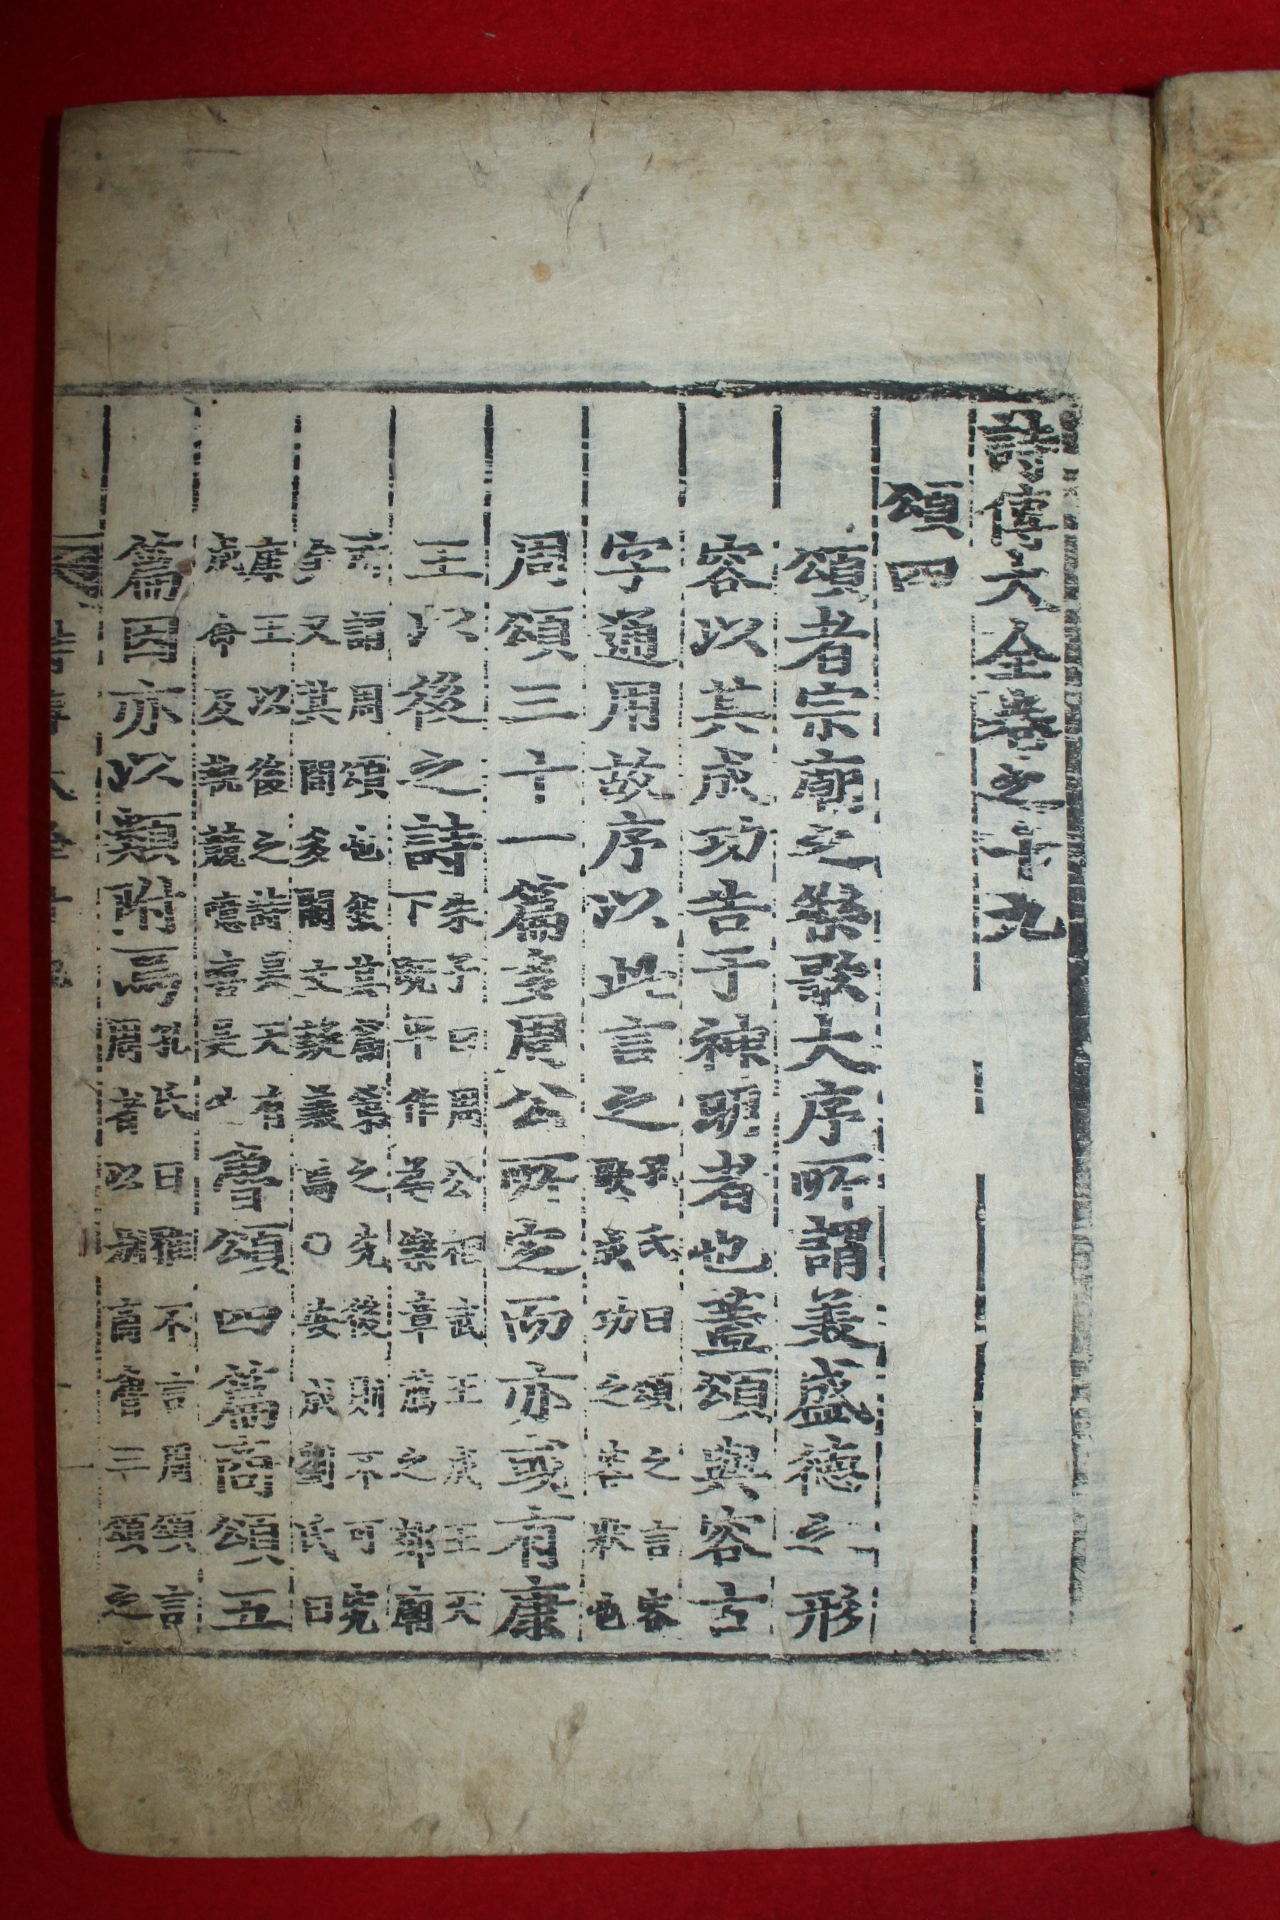 詩傳大全卷之十九
頌四
頌者宗廟之樂歌大序所謂美盛德之形
容以其成功告于神明者也蓋頌與容古
字通用故序以此言之孔氏曰頌之言容
歌成功之容狀也
周頌三十一篇多周公所定而亦或有康
王以後之詩朱子曰周公相武王成王天
下旣平作爲樂章薦之郊廟
所謂周頌也然其篇第之先後則不可究
今又其間多闕文疑義焉○安成劉氏曰
康王以後之詩昊天有
成命及執競噫嘻是也魯頌四篇商頌五
篇因亦以類附焉孔氏曰雅不言周頌言
周者以別商魯三頌之